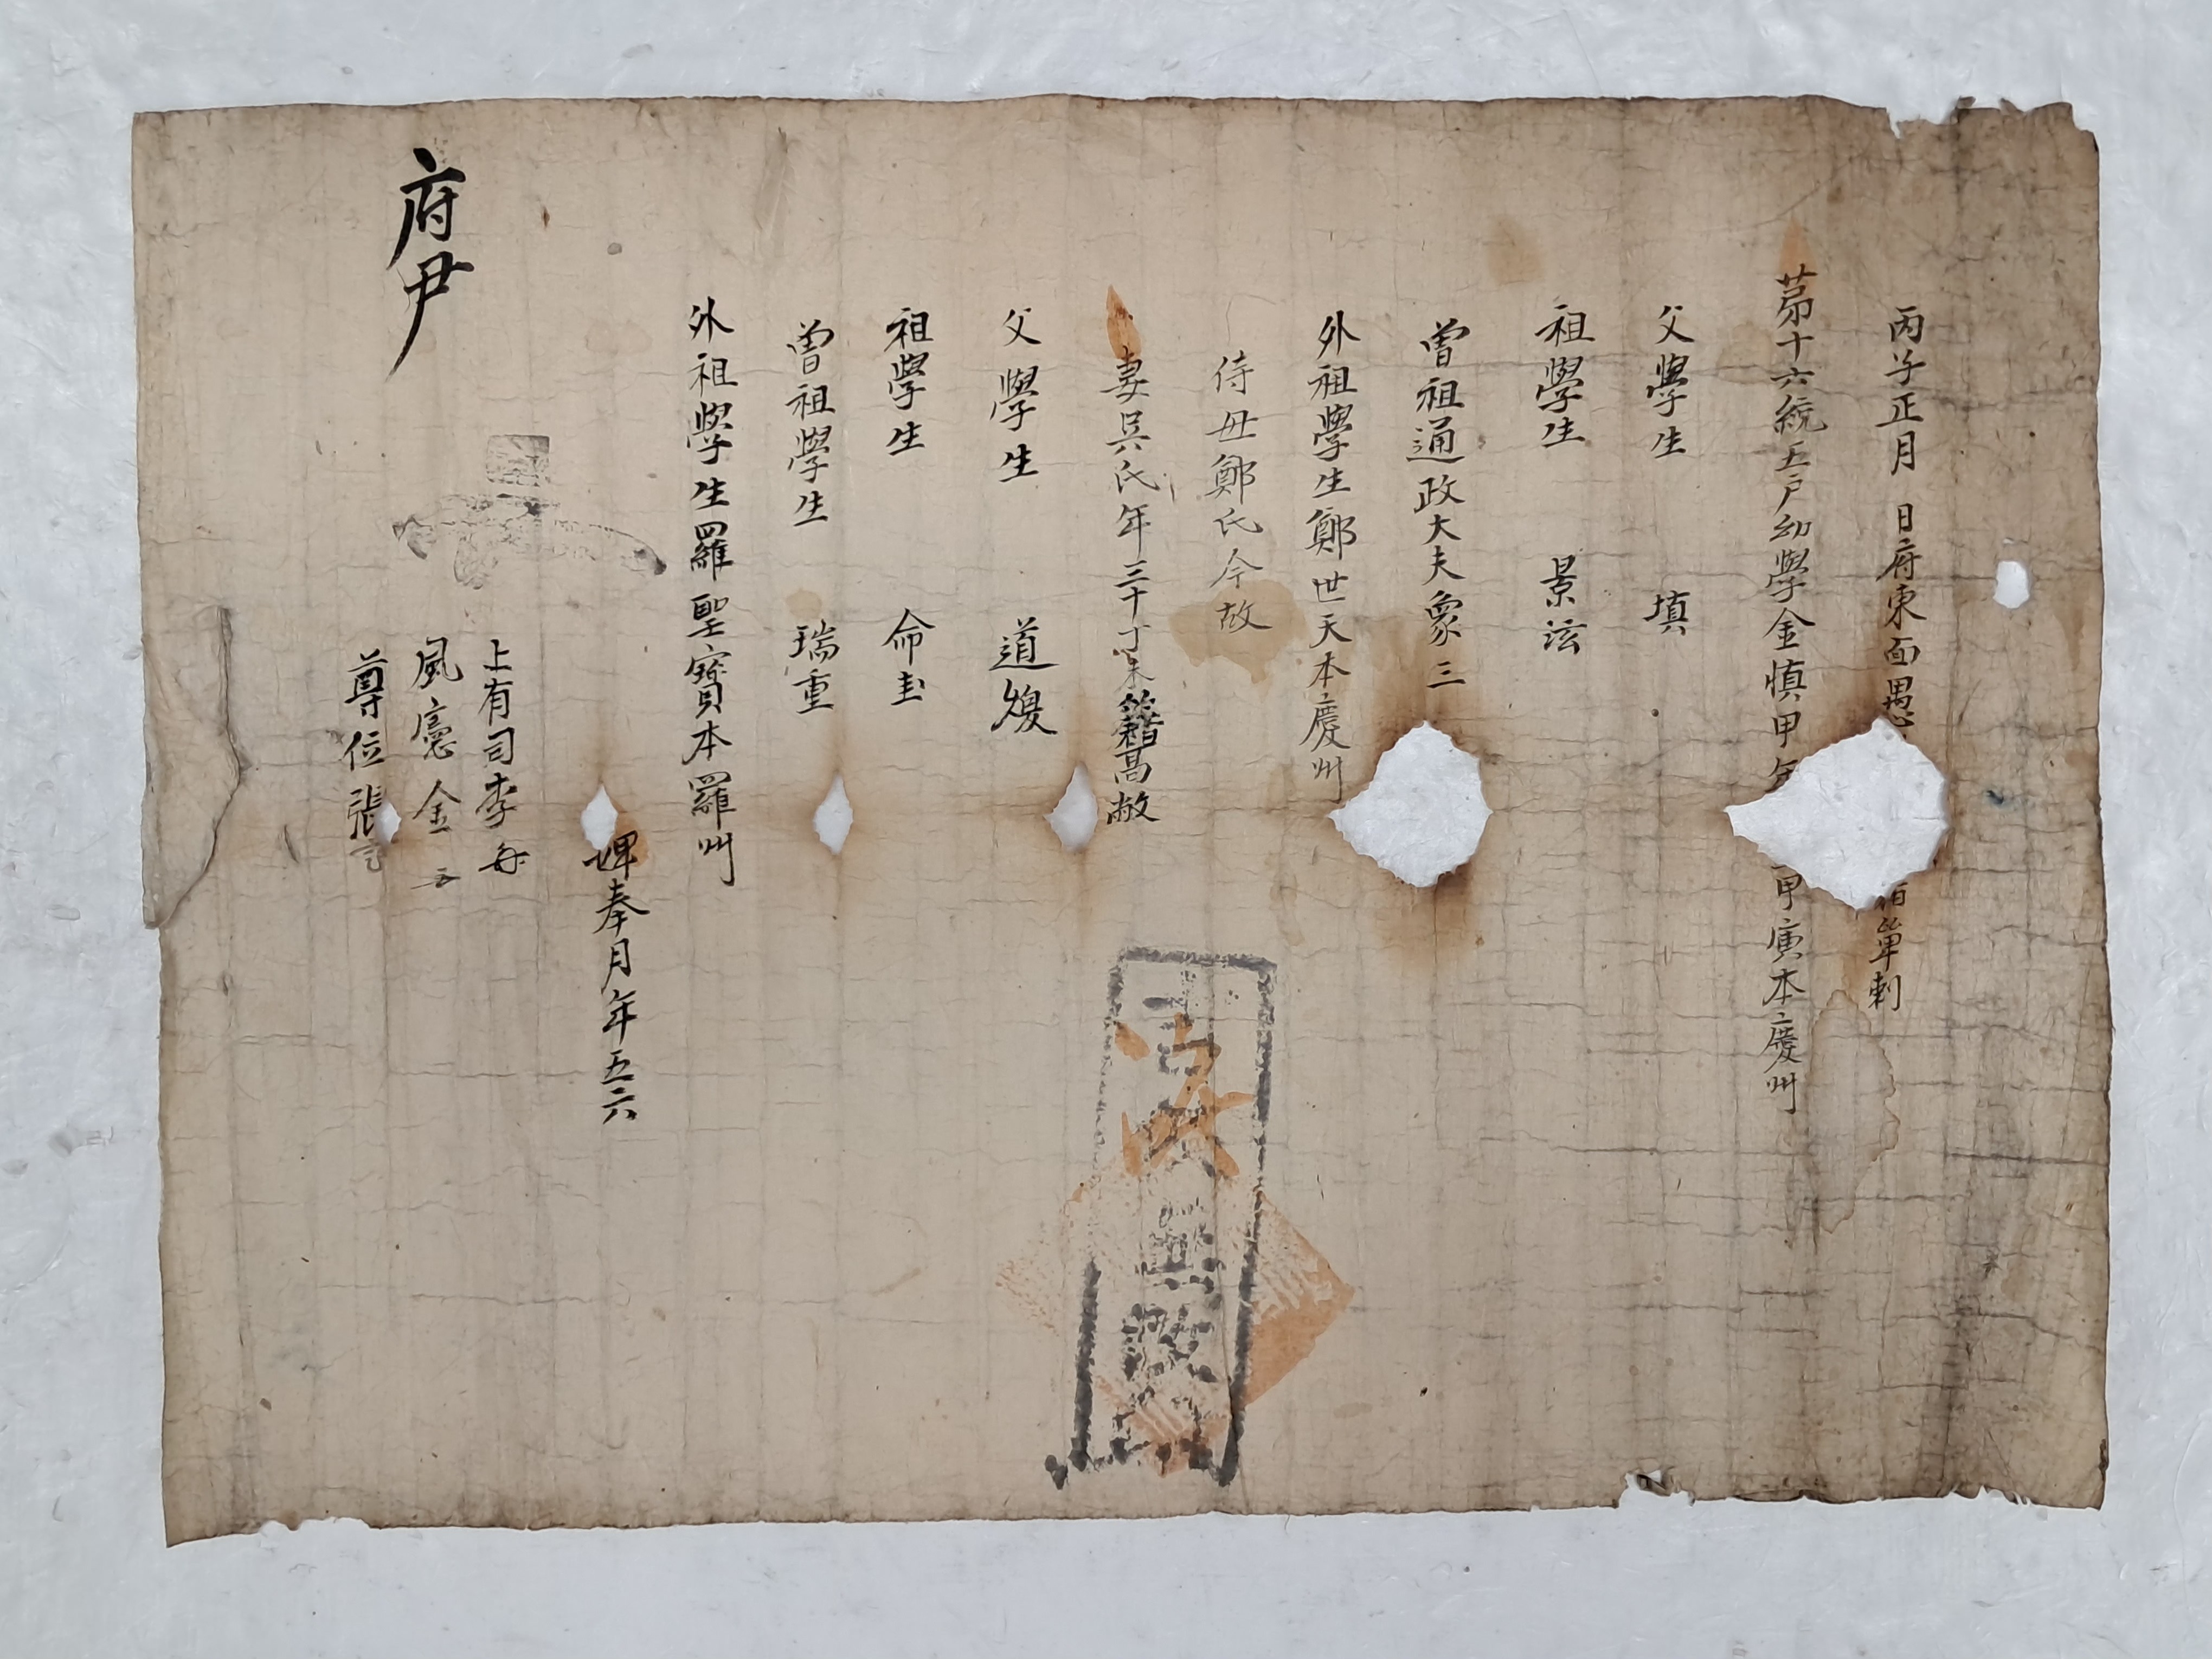 丙子正月 日府東面愚 䄂單剌
苐十六統五戶幼學金愼甲年 甲寅本慶州
父學生 塡
祖學生 景泫
曽祖通政大夫象三
外祖學生鄭世天本慶州
侍母鄭氏今故
妻吳氏年三十丁未籍高敞
父學生 道
祖學生 命圭
曽祖學生 瑞重
外祖學生羅聖寶本羅州
婢奉月年五六
上有司李
風憲金
尊位張
府尹